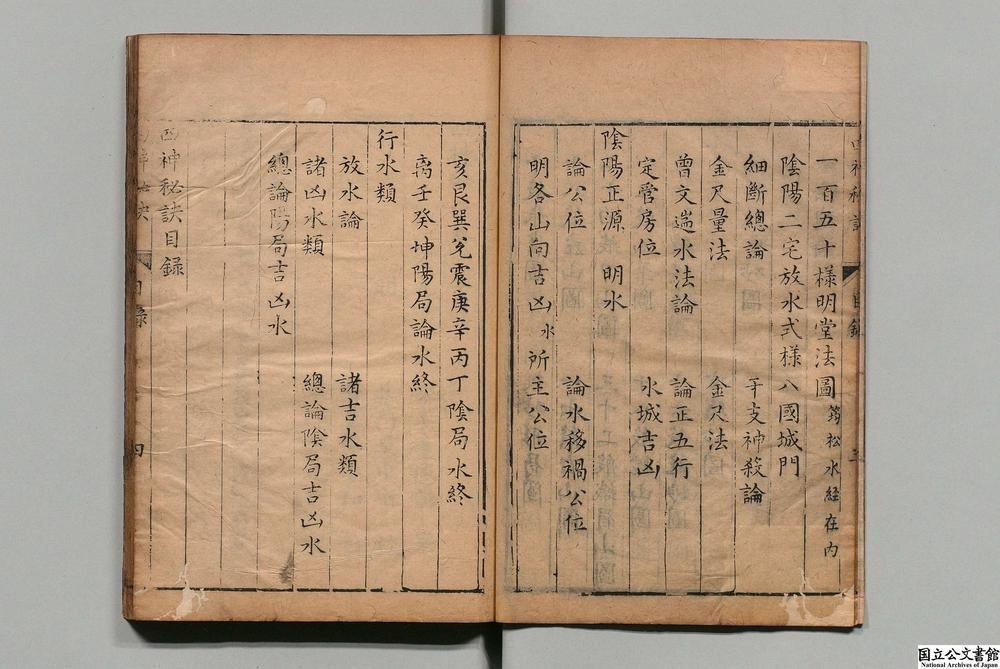 一百五十樣明堂法圖 筠松水經在内
陰陽二宅放水式樣八國城門
細斷總論 干支神殺論
金尺量法 金尺法
曾文遄水法論 論正五行
定管房位 水城吉凶
陰陽正源 明水
論公位 論水移禍公位
明各山向吉凶水所主公位
亥艮巽兊震庚辛丙丁陰局水終
离壬癸坤陽局論水終
行水類
放水論 諸吉水類
諸凶水類 總論陰局吉凶水
總論陽局吉凶水
四神秘訣目録
目録 四
国立公文書館
National Archives of Japan